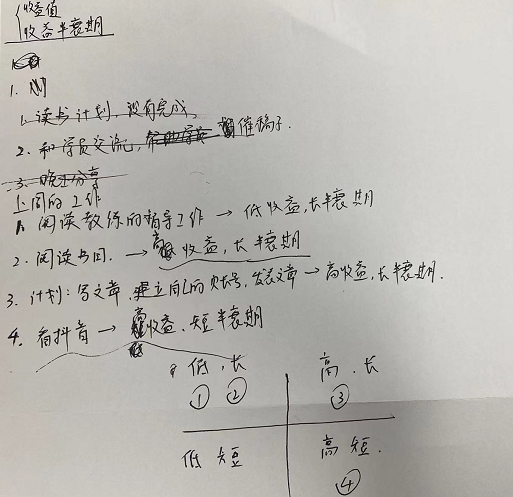 收益值
收益半衰期
1.
1. 读书计划, 没有完成
2. 和学员交流, 催稿子.
3. 晚上分享
上周的工作
1. 阅读教练的指导工作 → 低收益, 长半衰期
2. 阅读书目. → 高收益, 长半衰期
3. 计划: 写文章, 建立自己的账号, 发表文章 → 高收益, 长半衰期.
4. 看抖音 → 高收益. 短半衰期
低, 长
高. 长
① ②
③
低 短
高 短.
④